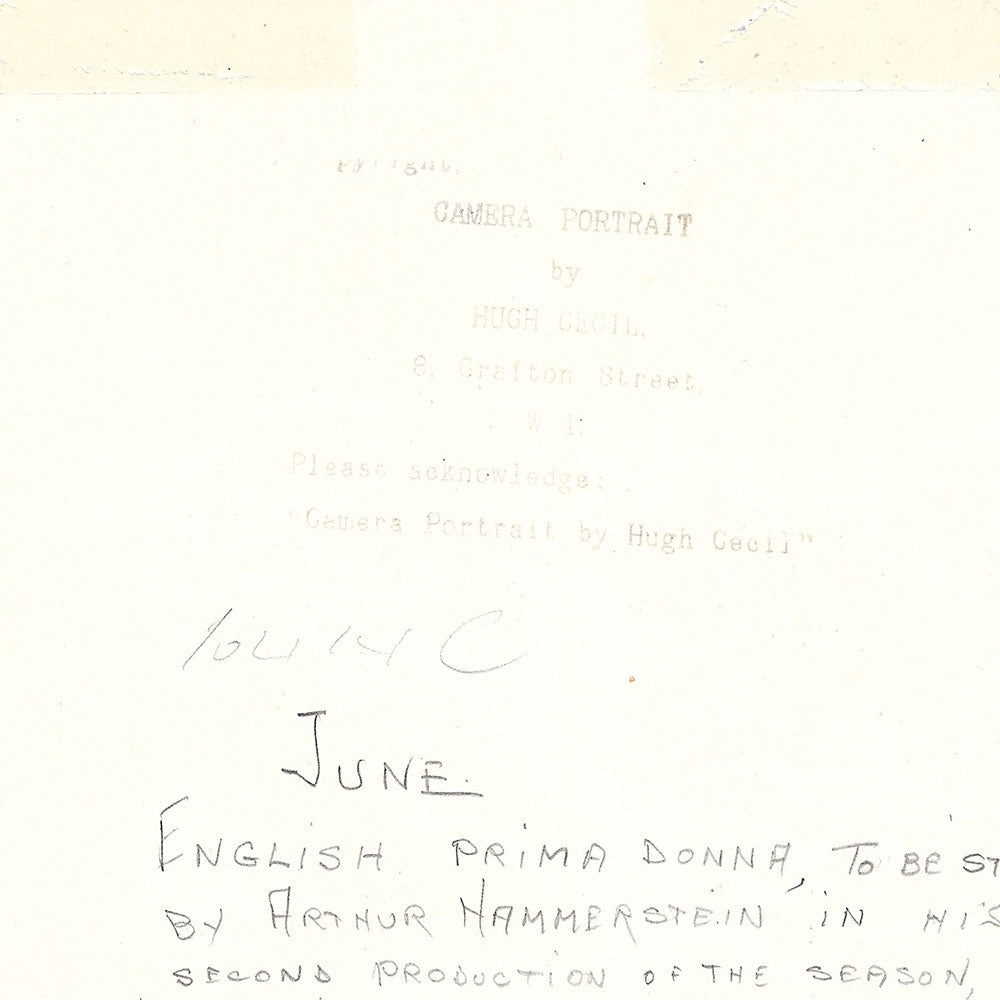 CAMERA PORTRAIT
by
HUGH CECIL,
8, Grafton Street,
W 1.
Please acknowledge:
"Camera Portrait by Hugh Cecil"
JUNE
ENGLISH PRIMA DONNA, TO BE ST
BY ARTHUR HAMMERSTEIN IN HIS
SECOND PRODUCTION OF THE SEASON,